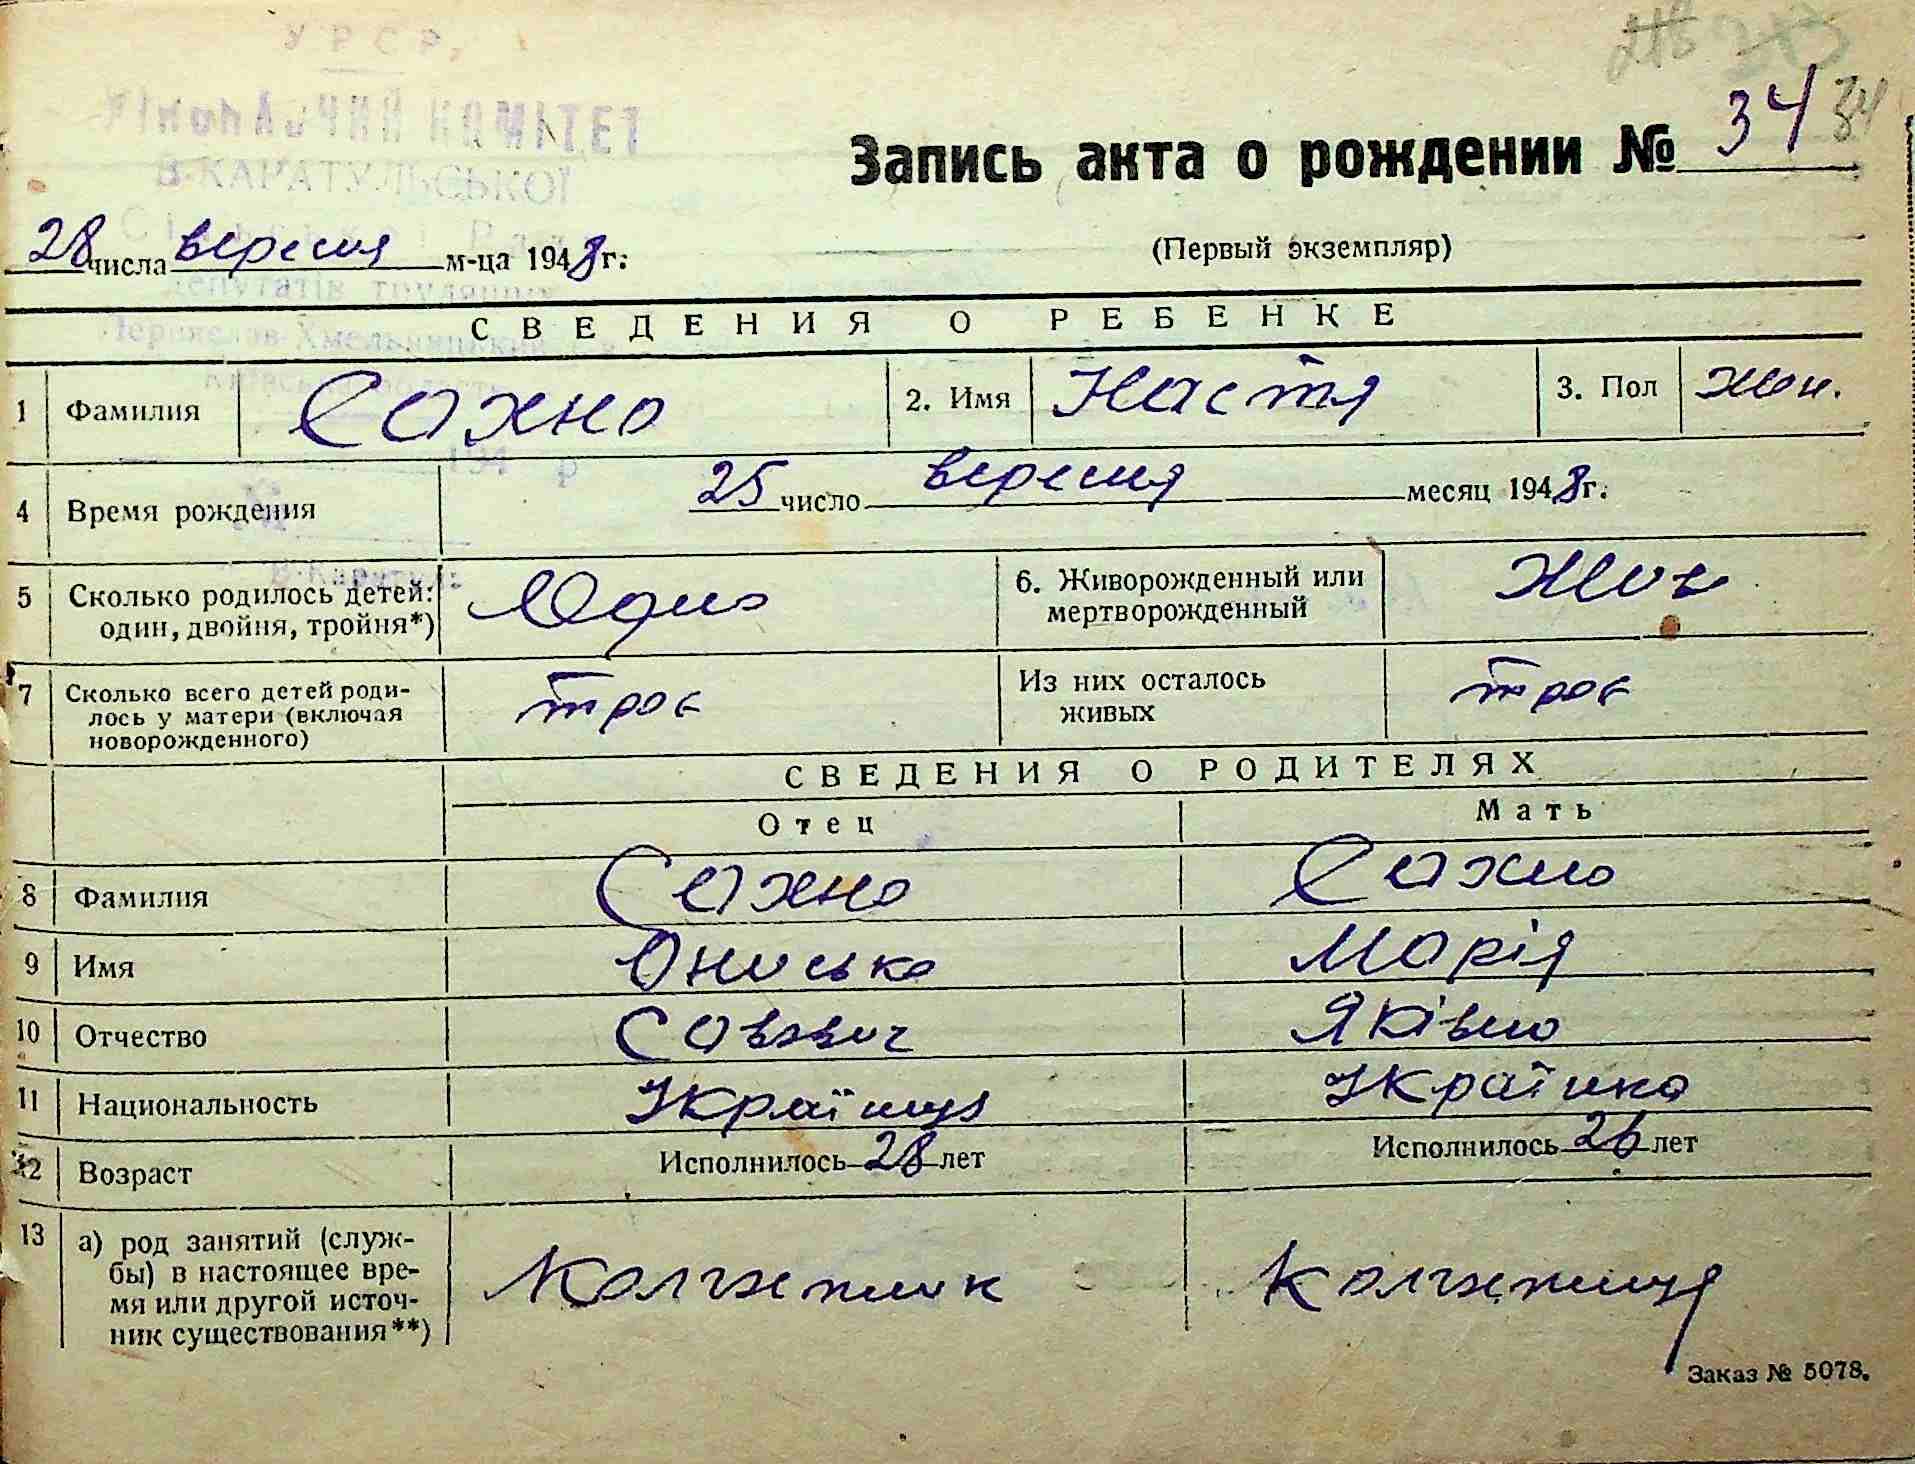 УРСР,
КОМІТЕТ
В-КАРАТУЛЬСЬКОЇ
Запись акта о рождении № 34 34
28 числа вересня м-ца 1948 г.
(Первый экземпляр)
депутатів трудящих
Переяслав-Хмельницький
СВЕДЕНИЯ О РЕБЕНКЕ
1 Фамилия Сахно 2. Имя Настя 3. Пол жин.
194 р
4 Время рождения 25 число вересня месяц 1948 г.
5 Сколько родилось детей: один, двойня, тройня*) Одно 6. Живорожденный или мертворожденный
7 Сколько всего детей роди-
лось у матери (включая
новорожденного) троє Из них осталось живых троє
СВЕДЕНИЯ О РОДИТЕЛЯХ
Отец Мать
8 Фамилия Сахно Сахно
9 Имя Онисько Марія
10 Отчество Савович Яківна
11 Национальность Українць Українка
12 Возраст Исполнилось 28 лет Исполнилось 26 лет
13 а) род занятий (служ-
бы) в настоящее вре-
мя или другой источ-
ник существования**) Колгоспник Колгоспниця
Заказ № 5078.